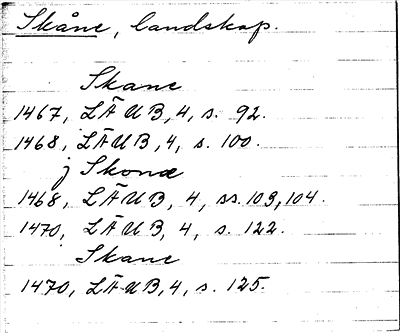 Skåne, landskap.
Skane
1467, LÄUB, 4, s. 92.
1468, LÄUB, 4, s. 100.
j Skonæ
1468, LÄUB, 4, ss. 103, 104.
1470, LÄUB, 4, s. 122.
Skane
1470, LÄUB, 4, s. 125.